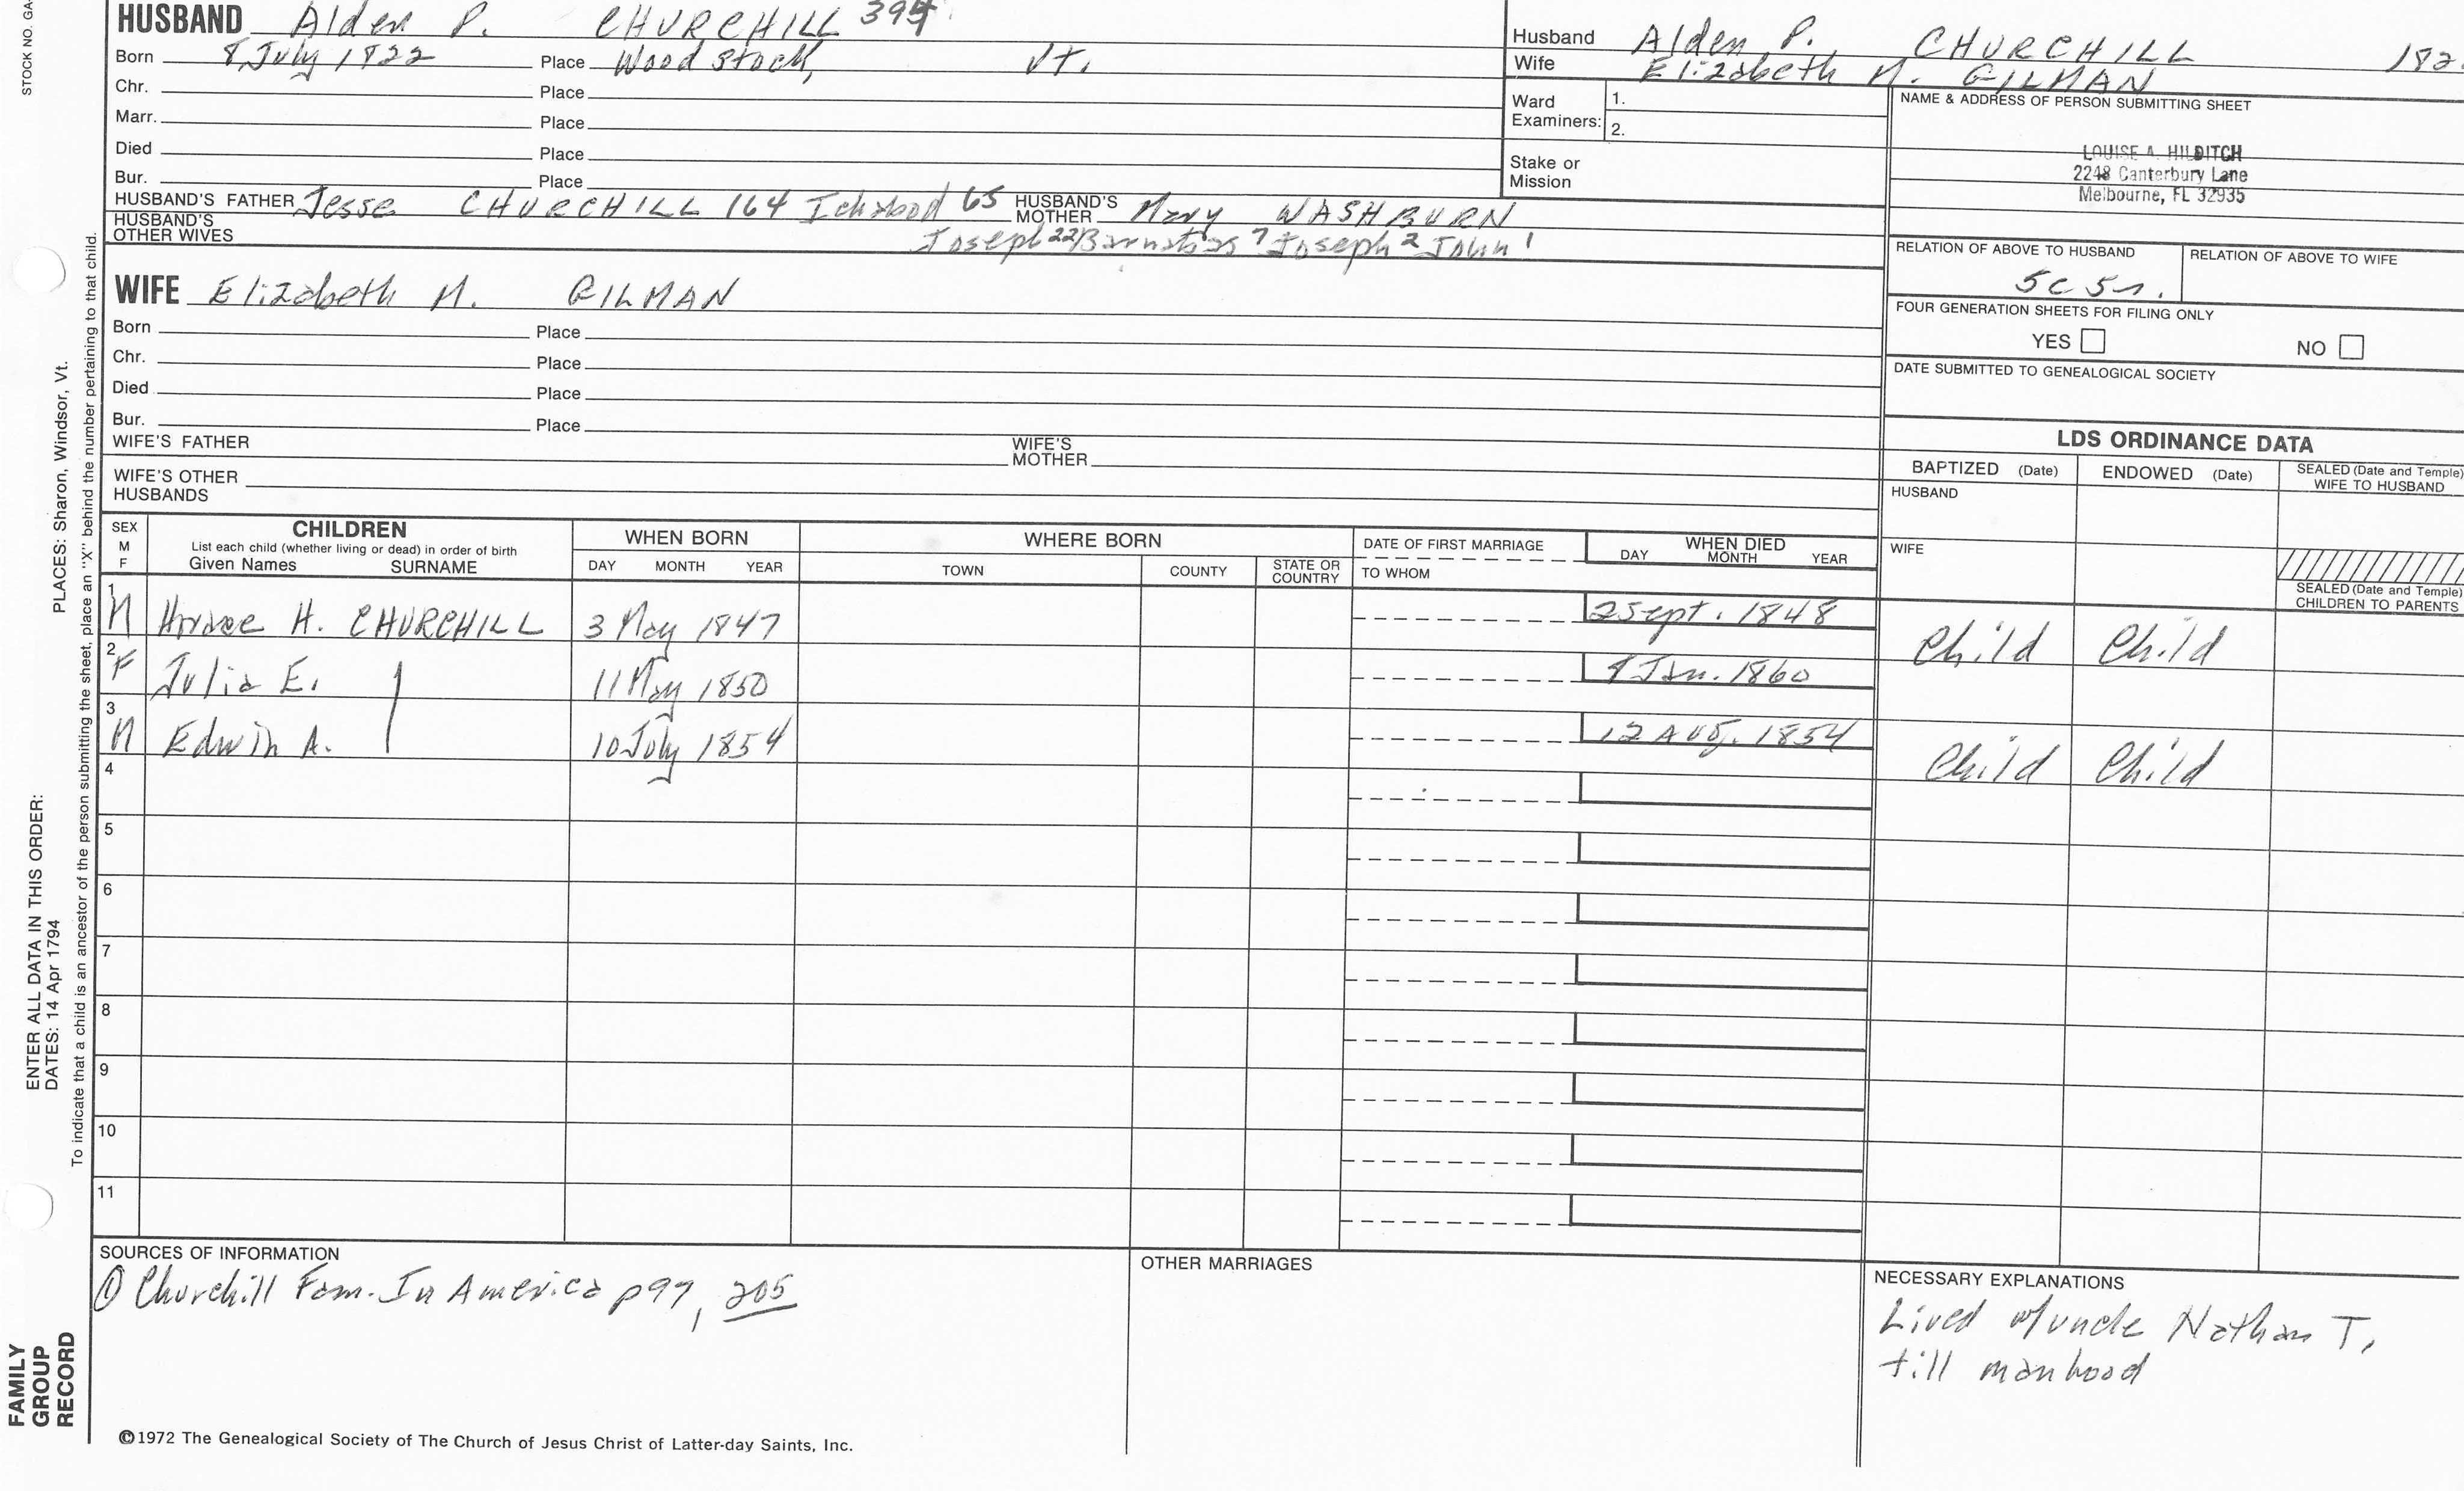 STOCK NO. GA
HUSBAND Alden P. CHURCHILL 394
Born 8 July 1822 Place Woodstock, Vt.
Chr. Place
Marr. Place
Died Place
Bur. Place
HUSBAND'S FATHER Jesse CHURCHILL 164 Ichabod 65 HUSBAND'S MOTHER Mary WASHBURN
HUSBAND'S OTHER WIVES Joseph 22 Barnabas 7 Joseph 2 John 1
WIFE Elizabeth M. GILMAN
Born Place
Chr. Place
Died Place
Bur. Place
WIFE'S FATHER WIFE'S MOTHER
WIFE'S OTHER HUSBANDS
Husband Alden P. CHURCHILL 182
Wife Elizabeth M. GILMAN
Ward Examiners: 1.
2.
Stake or Mission
NAME & ADDRESS OF PERSON SUBMITTING SHEET
LOUISE A. HILDITCH
2248 Canterbury Lane
Melbourne, FL 32935
RELATION OF ABOVE TO HUSBAND RELATION OF ABOVE TO WIFE
5c 5r.
FOUR GENERATION SHEETS FOR FILING ONLY
YES NO
DATE SUBMITTED TO GENEALOGICAL SOCIETY
LDS ORDINANCE DATA
BAPTIZED (Date) ENDOWED (Date) SEALED (Date and Temple) WIFE TO HUSBAND
HUSBAND
WIFE
SEALED (Date and Temple) CHILDREN TO PARENTS
SEX M F CHILDREN WHEN BORN WHERE BORN DATE OF FIRST MARRIAGE WHEN DIED
List each child (whether living or dead) in order of birth
Given Names SURNAME DAY MONTH YEAR TOWN COUNTY STATE OR COUNTRY TO WHOM DAY MONTH YEAR
1 M Horace H. CHURCHILL 3 May 1847 2 Sept. 1848 Child Child
2 F Julia E. 11 May 1850 8 Jan. 1860
3 M Edwin A. 10 July 1854 12 Aug. 1854 Child Child
4
5
6
7
8
9
10
11
SOURCES OF INFORMATION
① Churchill Fam. In America p97, 205
OTHER MARRIAGES
NECESSARY EXPLANATIONS
Lived w/uncle Nathan T.
till manhood
©1972 The Genealogical Society of The Church of Jesus Christ of Latter-day Saints, Inc.
FAMILY
GROUP
RECORD
ENTER ALL DATA IN THIS ORDER:
DATES: 14 Apr 1794
PLACES: Sharon, Windsor, Vt.
To indicate that a child is an ancestor of the person submitting the sheet, place an "X" behind the number pertaining to that child.